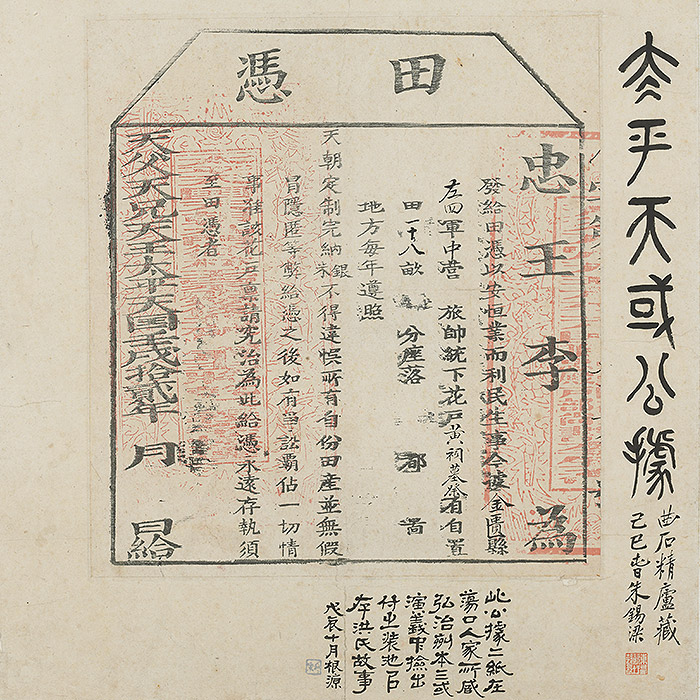 太平天或公據
曲石精廬藏
己巳春朱錫梁
田憑
忠王李為
發給田憑以安恒業而利民生事今據金匱縣
左四軍中營 旅帥統下花戶黃祠墓祭有自置
田一十八畝 分座落 都 啚
地方每年遵照
天朝定制完納銀米不得違悞所有自份田產並無假
冒隱匿等弊給憑之後如有爭訟霸佔一切情
事准該花戶稟請究治為此給憑永遠存執須
至田憑者
天父天兄天王太平天囯壬戌拾貳年 月 日給
此公據二紙在
蕩口人家所臧
弘治刻本三或
演義中撿出
付之裝池
存洪氏故事
戊辰十月根源